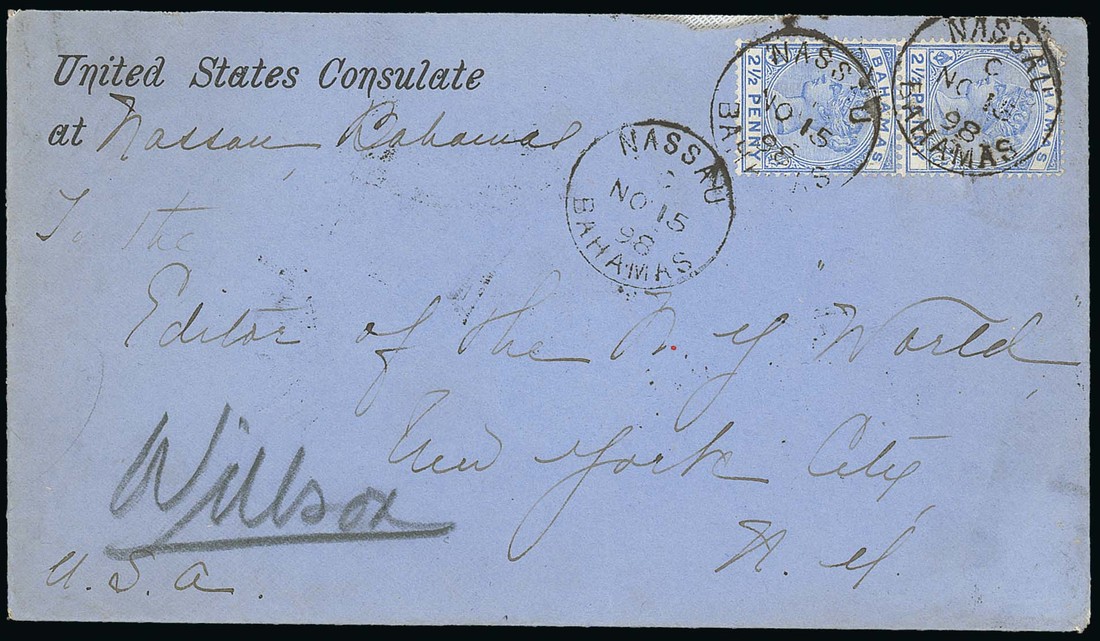 United States Consulate
at Nassau Bahamas
BAHAMAS
2½ PENNY
BAHAMAS
2½ PENNY
NASSAU
NO 15
98
BAHAMAS
NASSAU
C
NO 15
98
BAHAMAS
NASSAU
C
NO 15
98
BAHAMAS
To the
Editor of the N. Y. World
New York City
N. Y.
Willson
U. S. A.